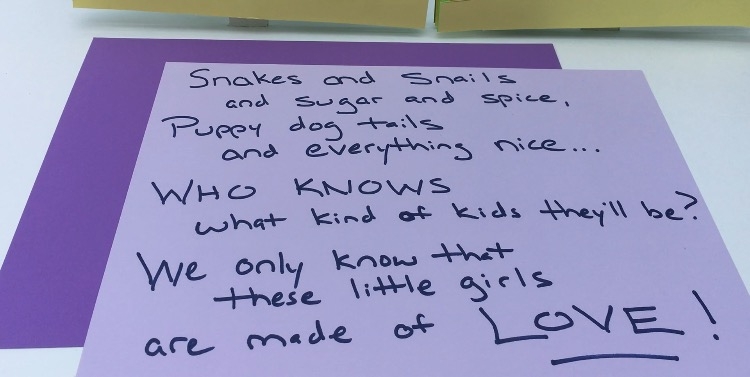 Snakes and Snails
and sugar and spice,
Puppy dog tails
and everything nice...
WHO KNOWS
what kind of kids they'll be?
We only know that
these little girls
are made of LOVE!